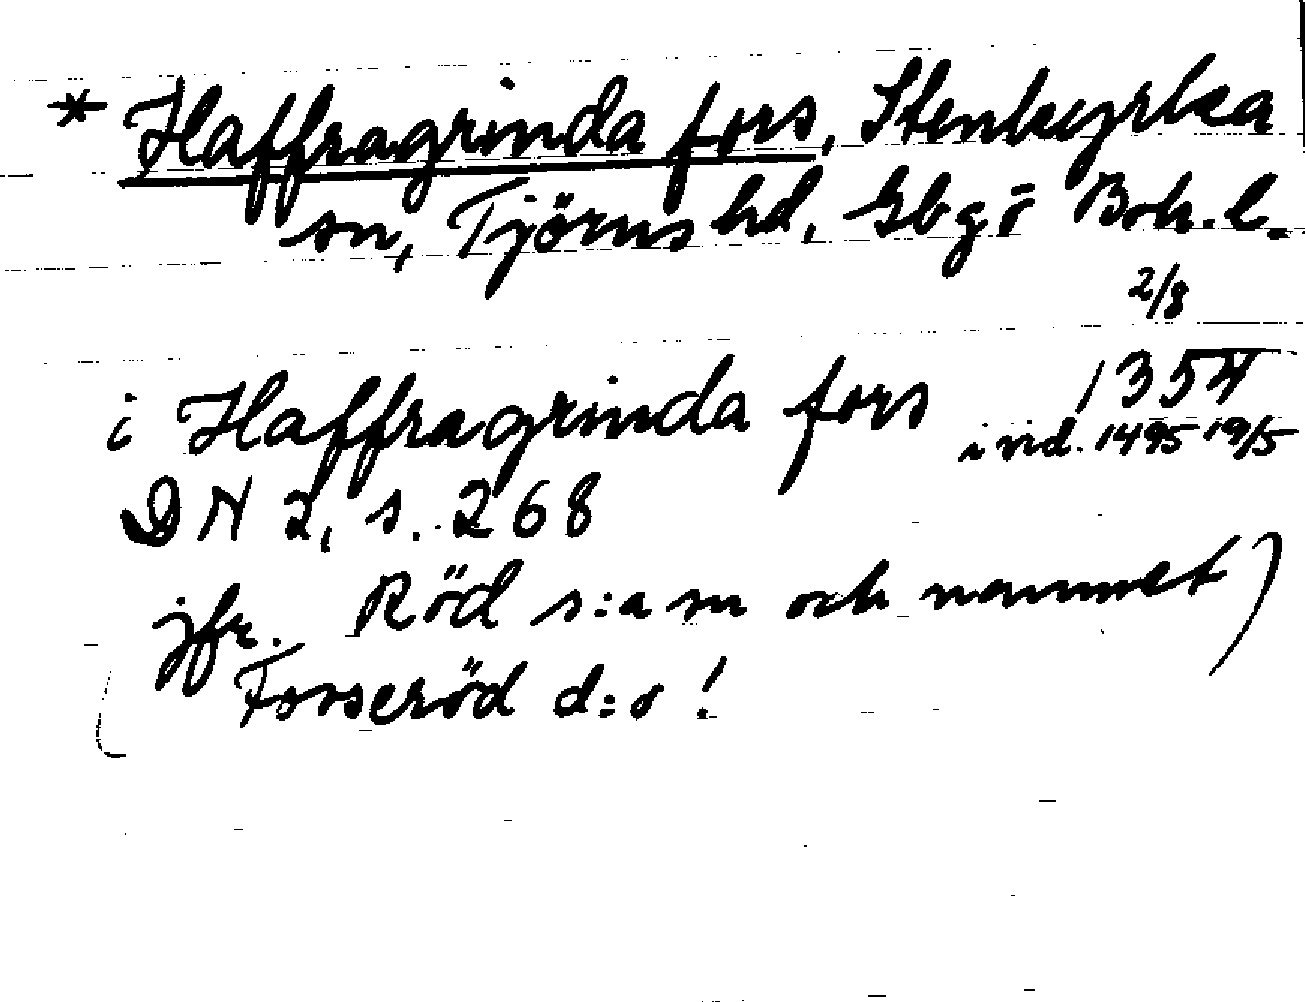 * Haffragrinda fors, Stenkyrka
sn, Tjörns hd, Gbg o Boh. l.
2/8
i Haffragrinda fors 1354
i vid. 1495 19/5
DN 2, s. 268
jfr. Röd s:a sn och namnet)
Fosseröd d:o !